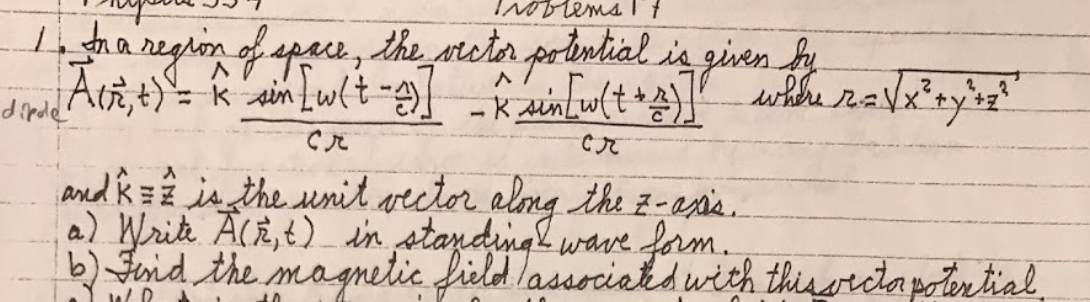 Problems 1
1. In a region of space, the vector potential is given by
dipole A⃗(r⃗,t) = k̂ sin[w(t - r/c)]/cr - k̂ sin[w(t + r/c)]/cr where r = √x²+y²+z²
and k̂ ≡ ẑ is the unit vector along the z-axis.
a) Write A⃗(r⃗,t) in standing wave form.
b) Find the magnetic field associated with this vector potential